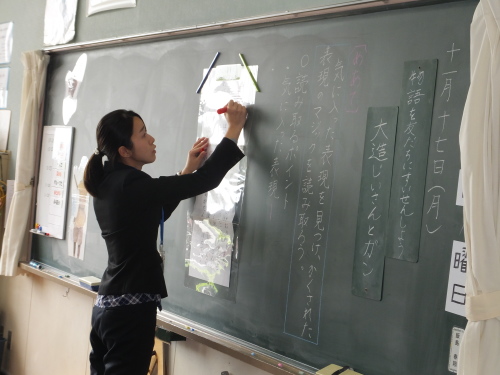 十一月十七日(月)
物語を友だちにすいせんしよう
大造じいさんとガン
めあて
気に入った表現を見つけ、かくされた
表現のマジックを読み取ろう。
○読み取るポイント
・気に入った表現
曜
日